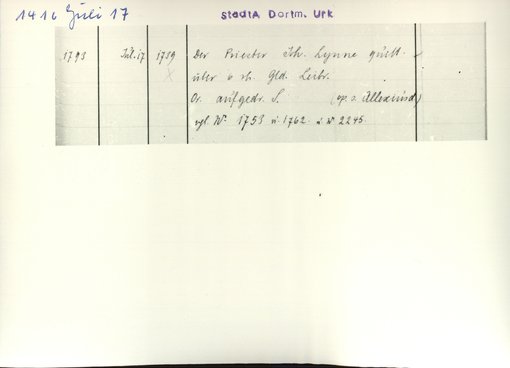 1416 Juli 17
StadtA Dortm. Urk
1793 Jul. 17 1739 Der Priester Joh. Lynne quitt.
über 6 rh. Gld. Leibr.
Or. aufgedr. S. (op. s. Allexii)
vgl. Nr. 1753 u. 1762. u. Nr 2245.